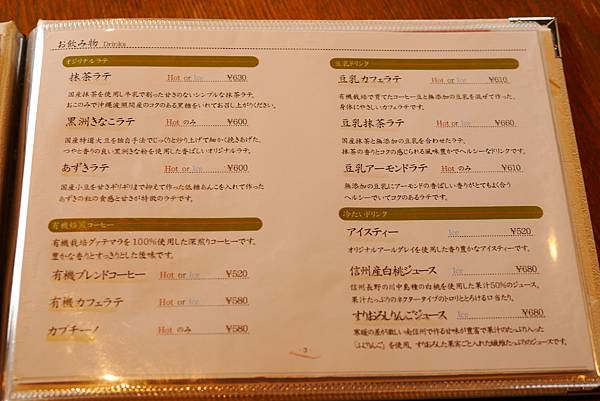 お飲み物 Drinks
オリジナルラテ
抹茶ラテ Hot or Ice ¥630
国産抹茶を使用し牛乳で割った甘さのないシンプルな抹茶ラテ。
おこのみで沖縄波照間産のコクのある黒糖をいれてお召し上がりください。
黒潤きなこラテ Hot のみ ¥600
国産特選大豆を独自手法でじっくりと炒り上げて細かく挽きあげた、
つやと香りの良い黒きな粉を使用した香ばしいオリジナルラテ。
あずきラテ Hot or Ice ¥600
国産小豆を甘さギリギリまで抑えて作った低糖あんこを入れて作った
あずきの粒の食感と甘さが特徴のラテです。
有機焙煎コーヒー
有機栽培グァテマラを100%使用した深煎りコーヒーです。
豊かな香りとすっきりとした後味です。
有機ブレンドコーヒー Hot or Ice ¥520
有機カフェラテ Hot or Ice ¥580
カプチーノ Hot のみ ¥580
豆乳ドリンク
豆乳カフェラテ Hot or Ice ¥610
有機栽培で育てたコーヒー豆と無添加の豆乳を混ぜて作った、
身体にやさしいカフェラテです。
豆乳抹茶ラテ Hot or Ice ¥660
国産抹茶と無添加の豆乳を合わせたラテ。
抹茶の香りとコクの感じられる風味豊かでヘルシーなドリンクです。
豆乳アーモンドラテ Hot のみ ¥610
無添加の豆乳にアーモンドの香ばしい香りがとてもよく合う
ヘルシーでいてコクのあるラテです。
冷たいドリンク
アイスティー Ice ¥520
オリジナルアールグレイを使用した香り豊かなアイスティーです。
信州産白桃ジュース Ice ¥680
信州長野の川中島種の白桃を使用した果汁50%のジュース。
果汁たっぷりのネクタータイプのトロリととろける口当り。
すりおろしりんごジュース Ice ¥680
寒暖の差が激しい南信州で作る甘味が豊富で果汁のたっぷり入った
「ふじりんご」を使用、すりおろした果実ごと入れた繊維たっぷりのジュースです。
- 3 -